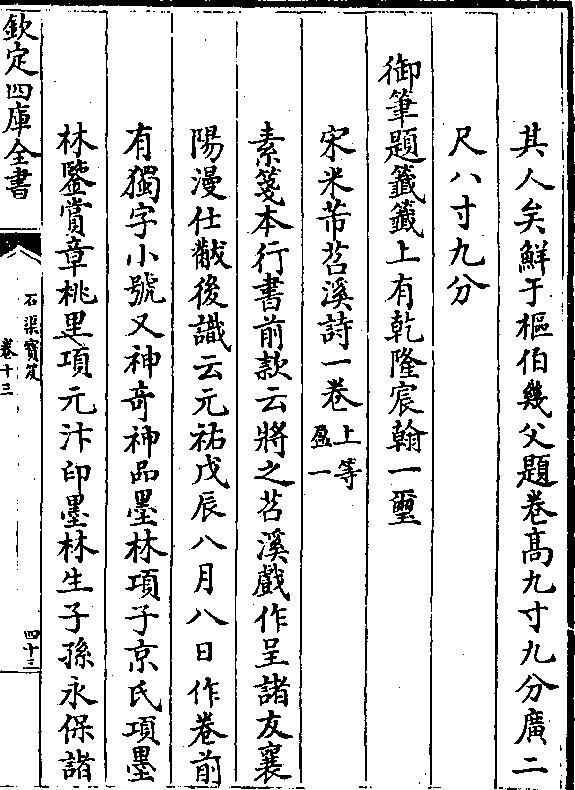 其人矣鮮于樞伯幾父題卷髙九寸九分廣二
尺八寸九分
御筆題籤籤上有乾隆宸翰一璽
宋米芾苕溪詩一卷上等盈一
素箋本行書前款云將之苕溪戲作呈諸友襄
陽漫仕黻後識云元祐戊辰八月八日作卷前
有獨字小號又神奇神品墨林項子京氏項墨
林鑒賞章桃里項元汴印墨林生子孫永保諸
欽定四庫全書
石渠寳笈
卷十三
四十三